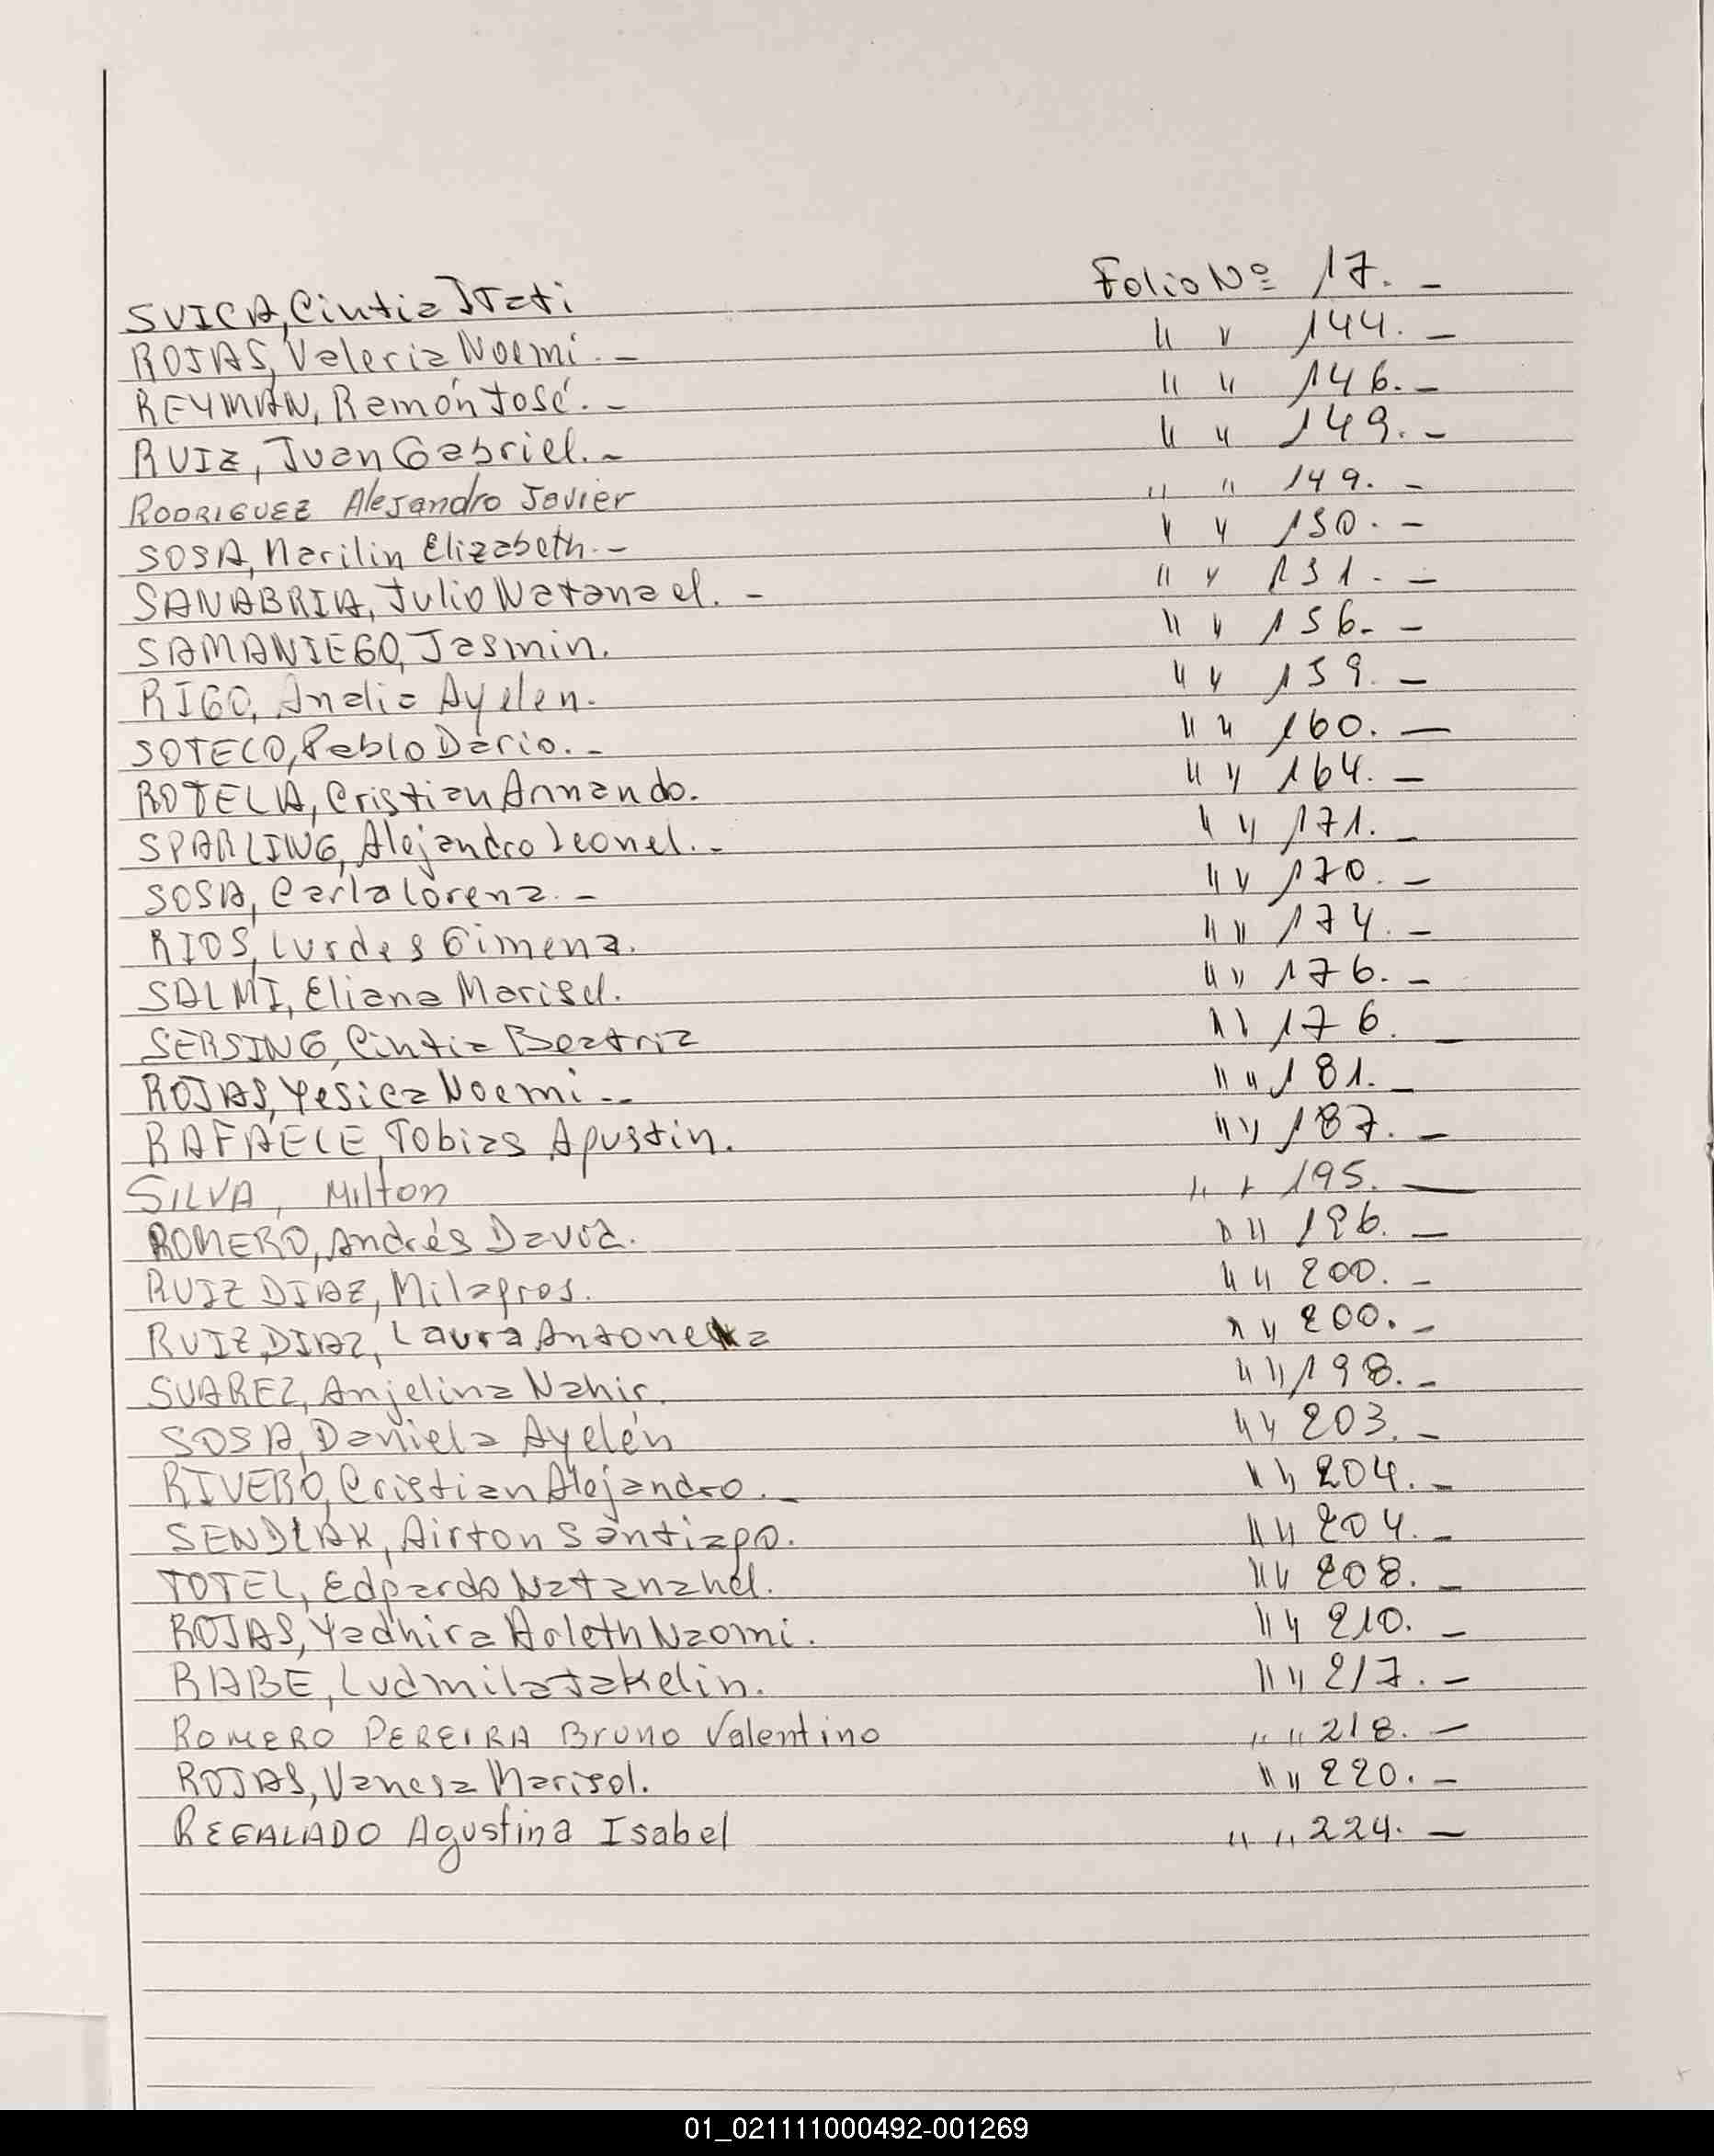 SVICA, Cintia Itati Folio Nº 17. -
ROJAS, Valeria Noemi. - " " 144. -
REYMAN, Ramón José. - " " 146. -
RUIZ, Juan Gabriel. - " " 149. -
RODRIGUEZ Alejandro Javier " " 149. -
SOSA, Marilin Elizabeth. - " " 150. -
SANABRIA, Julio Natanael. - " " 151. -
SAMANIEGO, Jasmin. " " 156. -
RIGO, Analia Ayelen. " " 159. -
SOTELO, Pablo Dario. - " " 160. -
ROTELA, Cristian Armando. " " 164. -
SPARLING, Alejandro Leonel. - " " 171. -
SOSA, Carla Lorena. - " " 170. -
RIOS, Lurdes Gimena. " " 174. -
SALMI, Eliana Marisel. " " 176. -
SERSING, Cintia Beatriz " " 176. -
ROJAS, Yesica Noemi. - " " 181. -
RAFAELE, Tobias Agustin. " " 187. -
SILVA, Milton " " 195. -
ROMERO, Andrés David. " " 196. -
RUIZ DIAZ, Milagros. " " 200. -
RUIZ DIAZ, Laura Antonella " " 200. -
SUAREZ, Anjelina Nahir. " " 198. -
SOSA, Daniela Ayelén " " 203. -
RIVERO, Cristian Alejandro. - " " 204. -
SENDLAK, Airton Santiago. " " 204. -
TOTEL, Edgardo Natanahel. " " 208. -
ROJAS, Yadhira Arleth Naomi. " " 210. -
RABE, Ludmila Jakelin. " " 217. -
ROMERO PEREIRA Bruno Valentino " " 218. -
ROJAS, Vanesa Marisol. " " 220. -
REGALADO Agustina Isabel " " 224. -
01_021111000492-001269